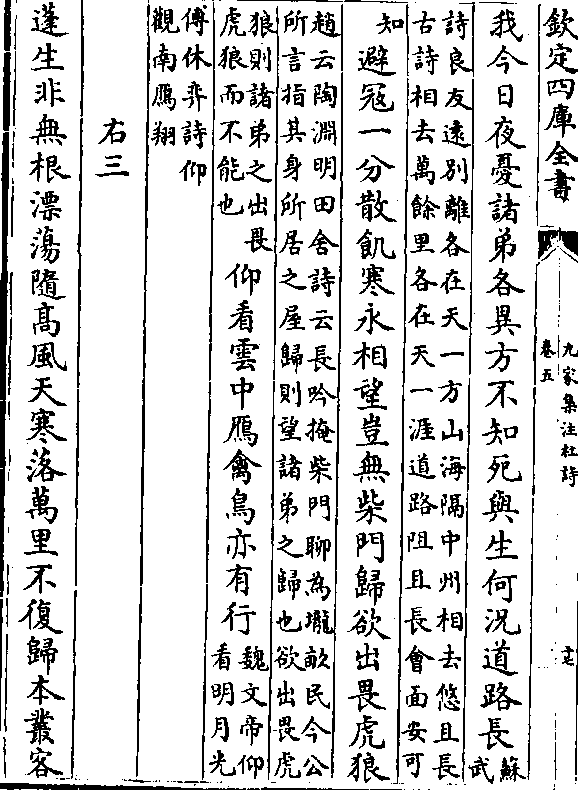 欽定四庫全書
九家集注杜詩
卷五
我今日夜憂諸弟各異方不知死與生何況道路長蘇
武
詩良友遠別離各在天一方山海隔中州相去悠且長
古詩相去萬餘里各在天一涯道路阻且長會面安可
知
避冦一分散飢寒永相望豈無柴門歸欲出畏虎狼
趙云陶淵明田舍詩云長吟掩柴門聊為壠畝民今公
所言指其身所居之屋歸則望諸弟之歸也欲出畏虎
狼則諸弟之出畏
虎狼而不能也
仰看雲中鴈禽鳥亦有行
魏文帝仰
看明月光
傅休奕詩仰
觀南鴈翔
右三
蓬生非無根漂蕩隨髙風天寒落萬里不復歸本叢客